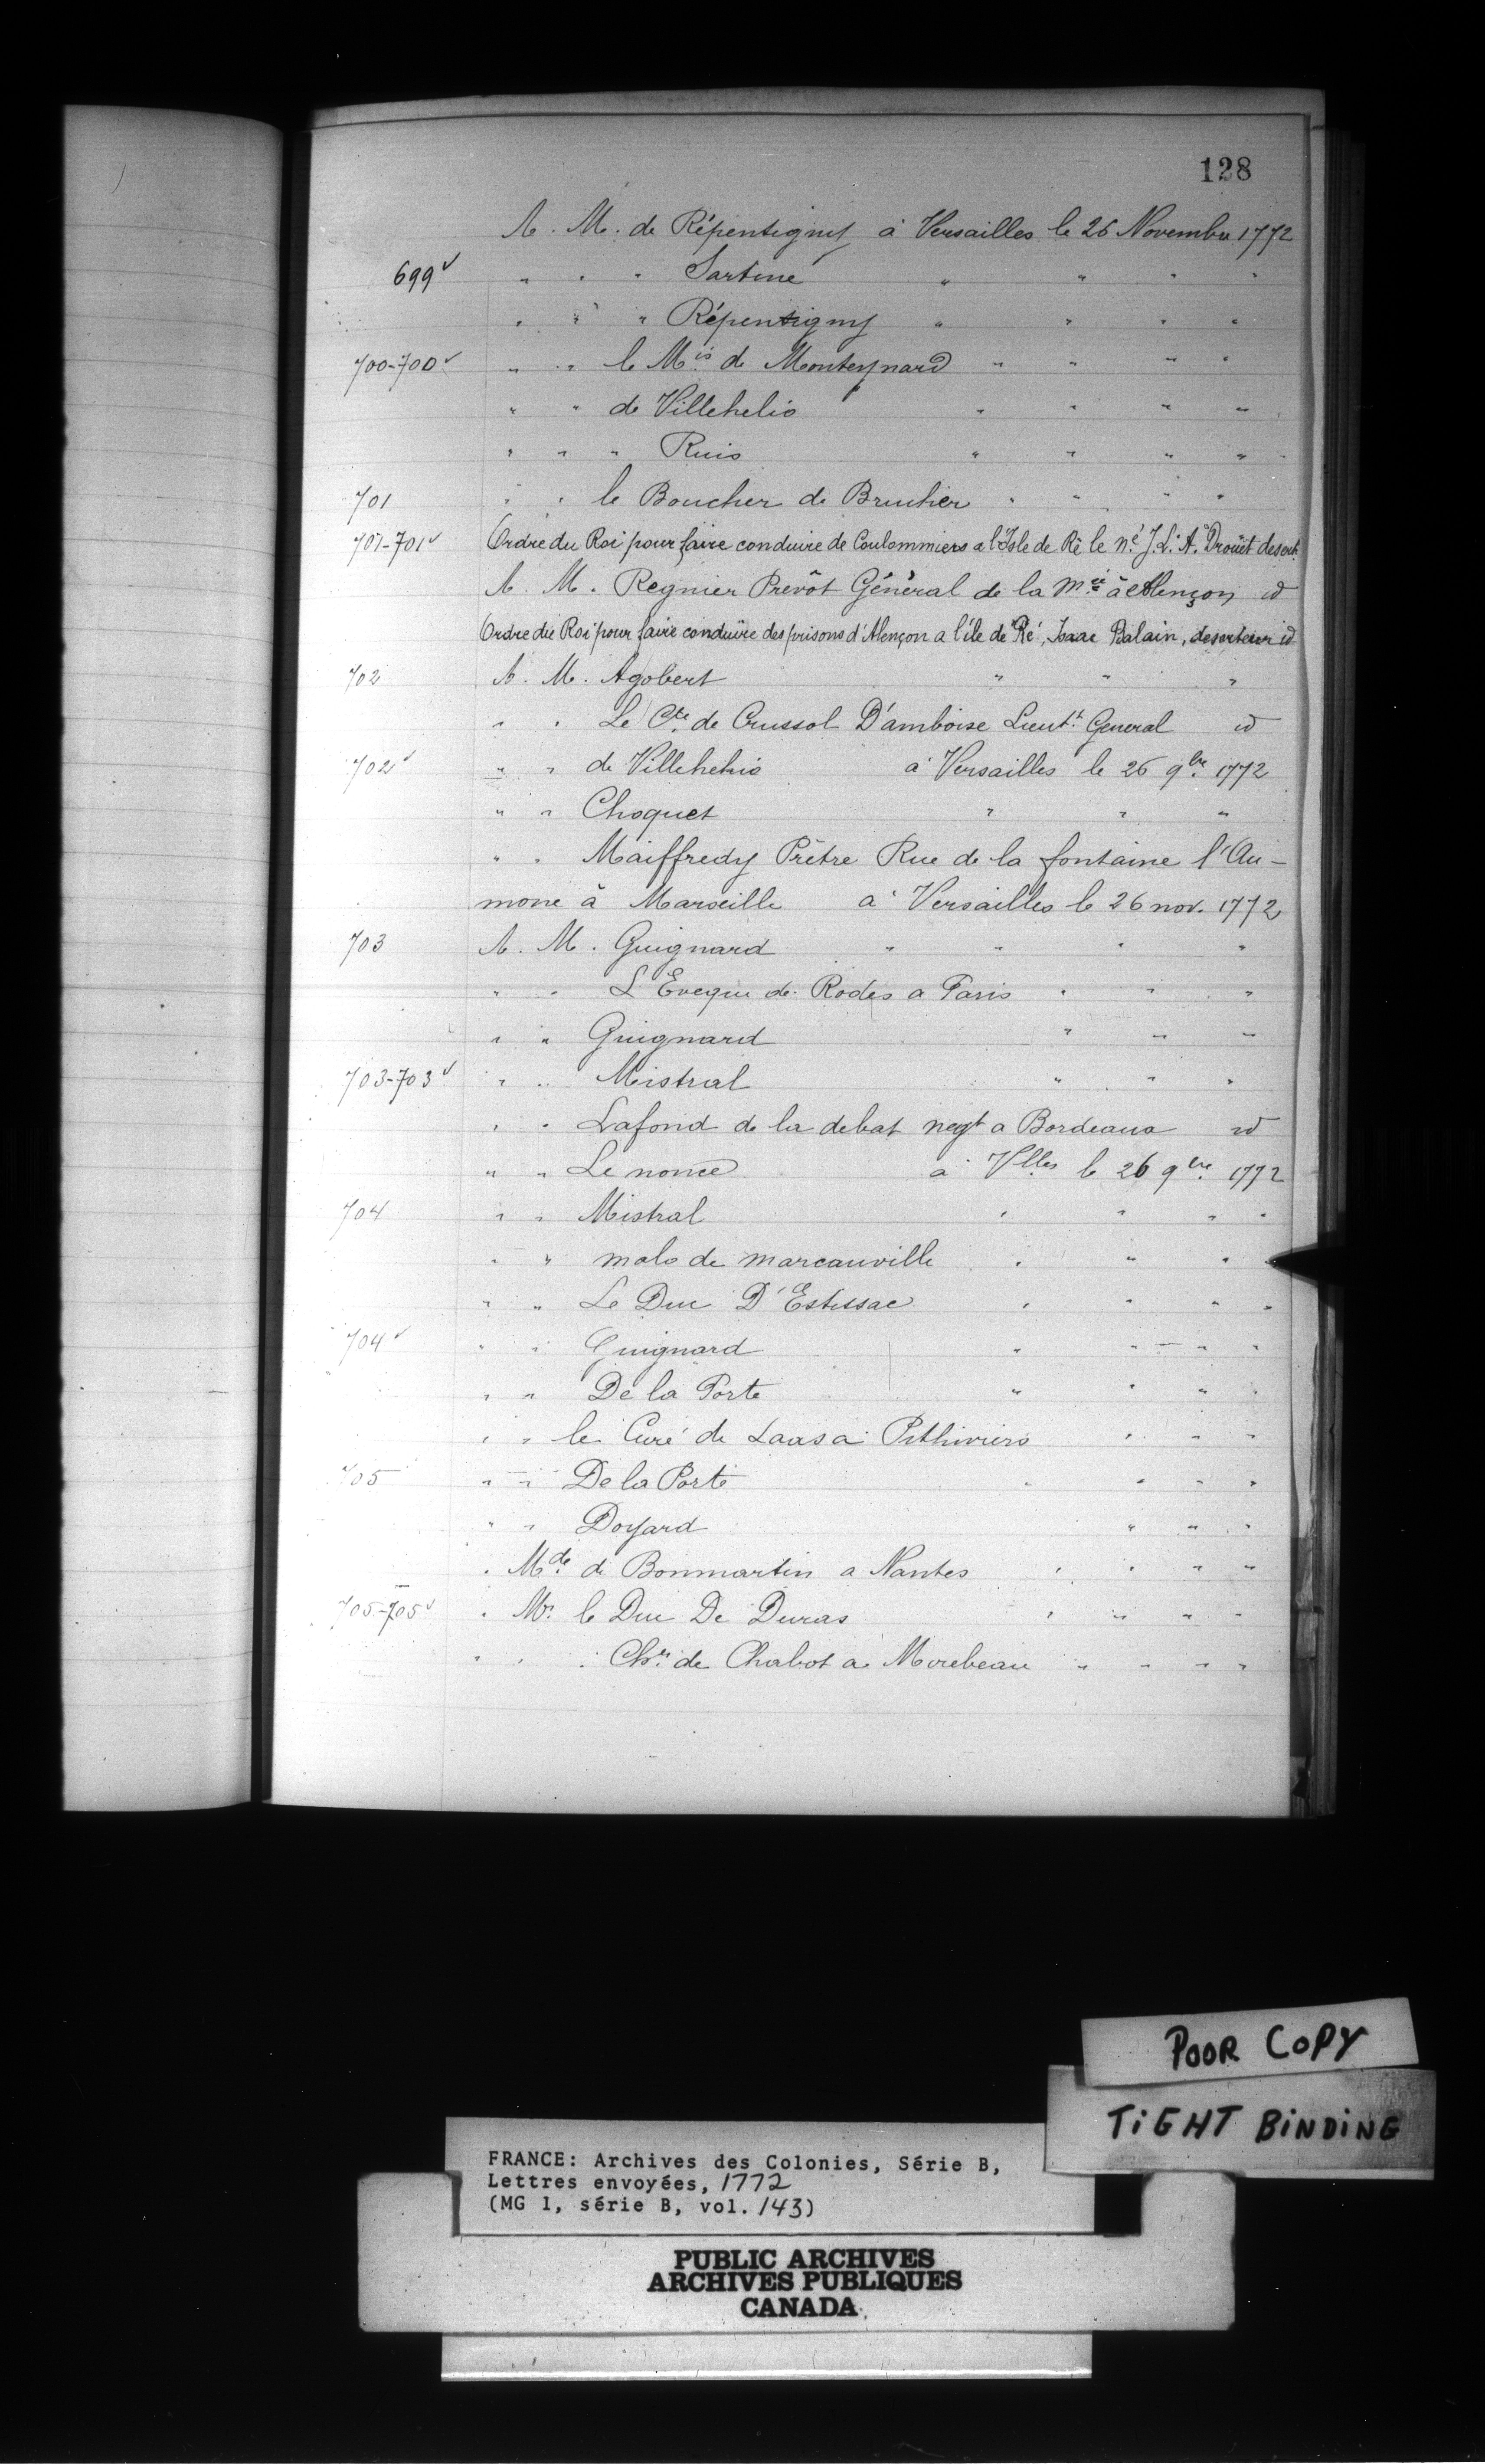 128
A. M. de Répentigny à Versailles le 26 Novembre 1772
699v " " " Sartine " " " "
" " " Répentigny " " " "
700-700v " " le Mis de Monteynard " " " "
" " de Villehelio " " " "
" " " Ruis " " " "
701 " " le Boucher de Bruslier " " " "
701-701v Ordre du Roi pour faire conduire de Coulommiers a l'Isle de Ré le né J. L. A. Drouët desert.
A. M. Regnier Prevôt Général de la Mée à Alençon id
Ordre du Roi pour faire conduire des prisons d'Alençon a l'île de Ré, Isaac Balain, deserteur id
702 A. M. Agobert " " "
" " Le Cte de Crussol D'amboise Lieutt General id
702v " " de Villehelio à Versailles le 26 9bre 1772
" " Choquet " " "
" " Maiffredy Prêtre Rue de la fontaine l'Au-
mone à Marseille à Versailles le 26 nov. 1772
703 A. M. Guignard " " " "
" " L'Eveque de Rodes a Paris " " "
" " Guignard " " "
703-703v " " Mistral " " "
" " Lafond de la debat negt a Bordeaux id
" " Le nonce à Vlles le 26 9bre 1772
704 " " Mistral " " " "
" " malo de marcanville " " " "
" " Le Duc D'Estissac " " " "
704v " " Guignard " " " "
" " De la Porte " " " "
" " le Curé de Laas a Pithiviers " " "
705 " " De la Porte " " " "
" " Doyard " " "
" Mde de Bonmartin a Nantes " " " "
705-705v " Mr le Duc De Duras " " " "
" " " Chr de Chabot a Mirebeau " " " "
POOR COPY
TIGHT BINDING
FRANCE: Archives des Colonies, Série B,
Lettres envoyées, 1772
(MG 1, série B, vol. 143)
PUBLIC ARCHIVES
ARCHIVES PUBLIQUES
CANADA